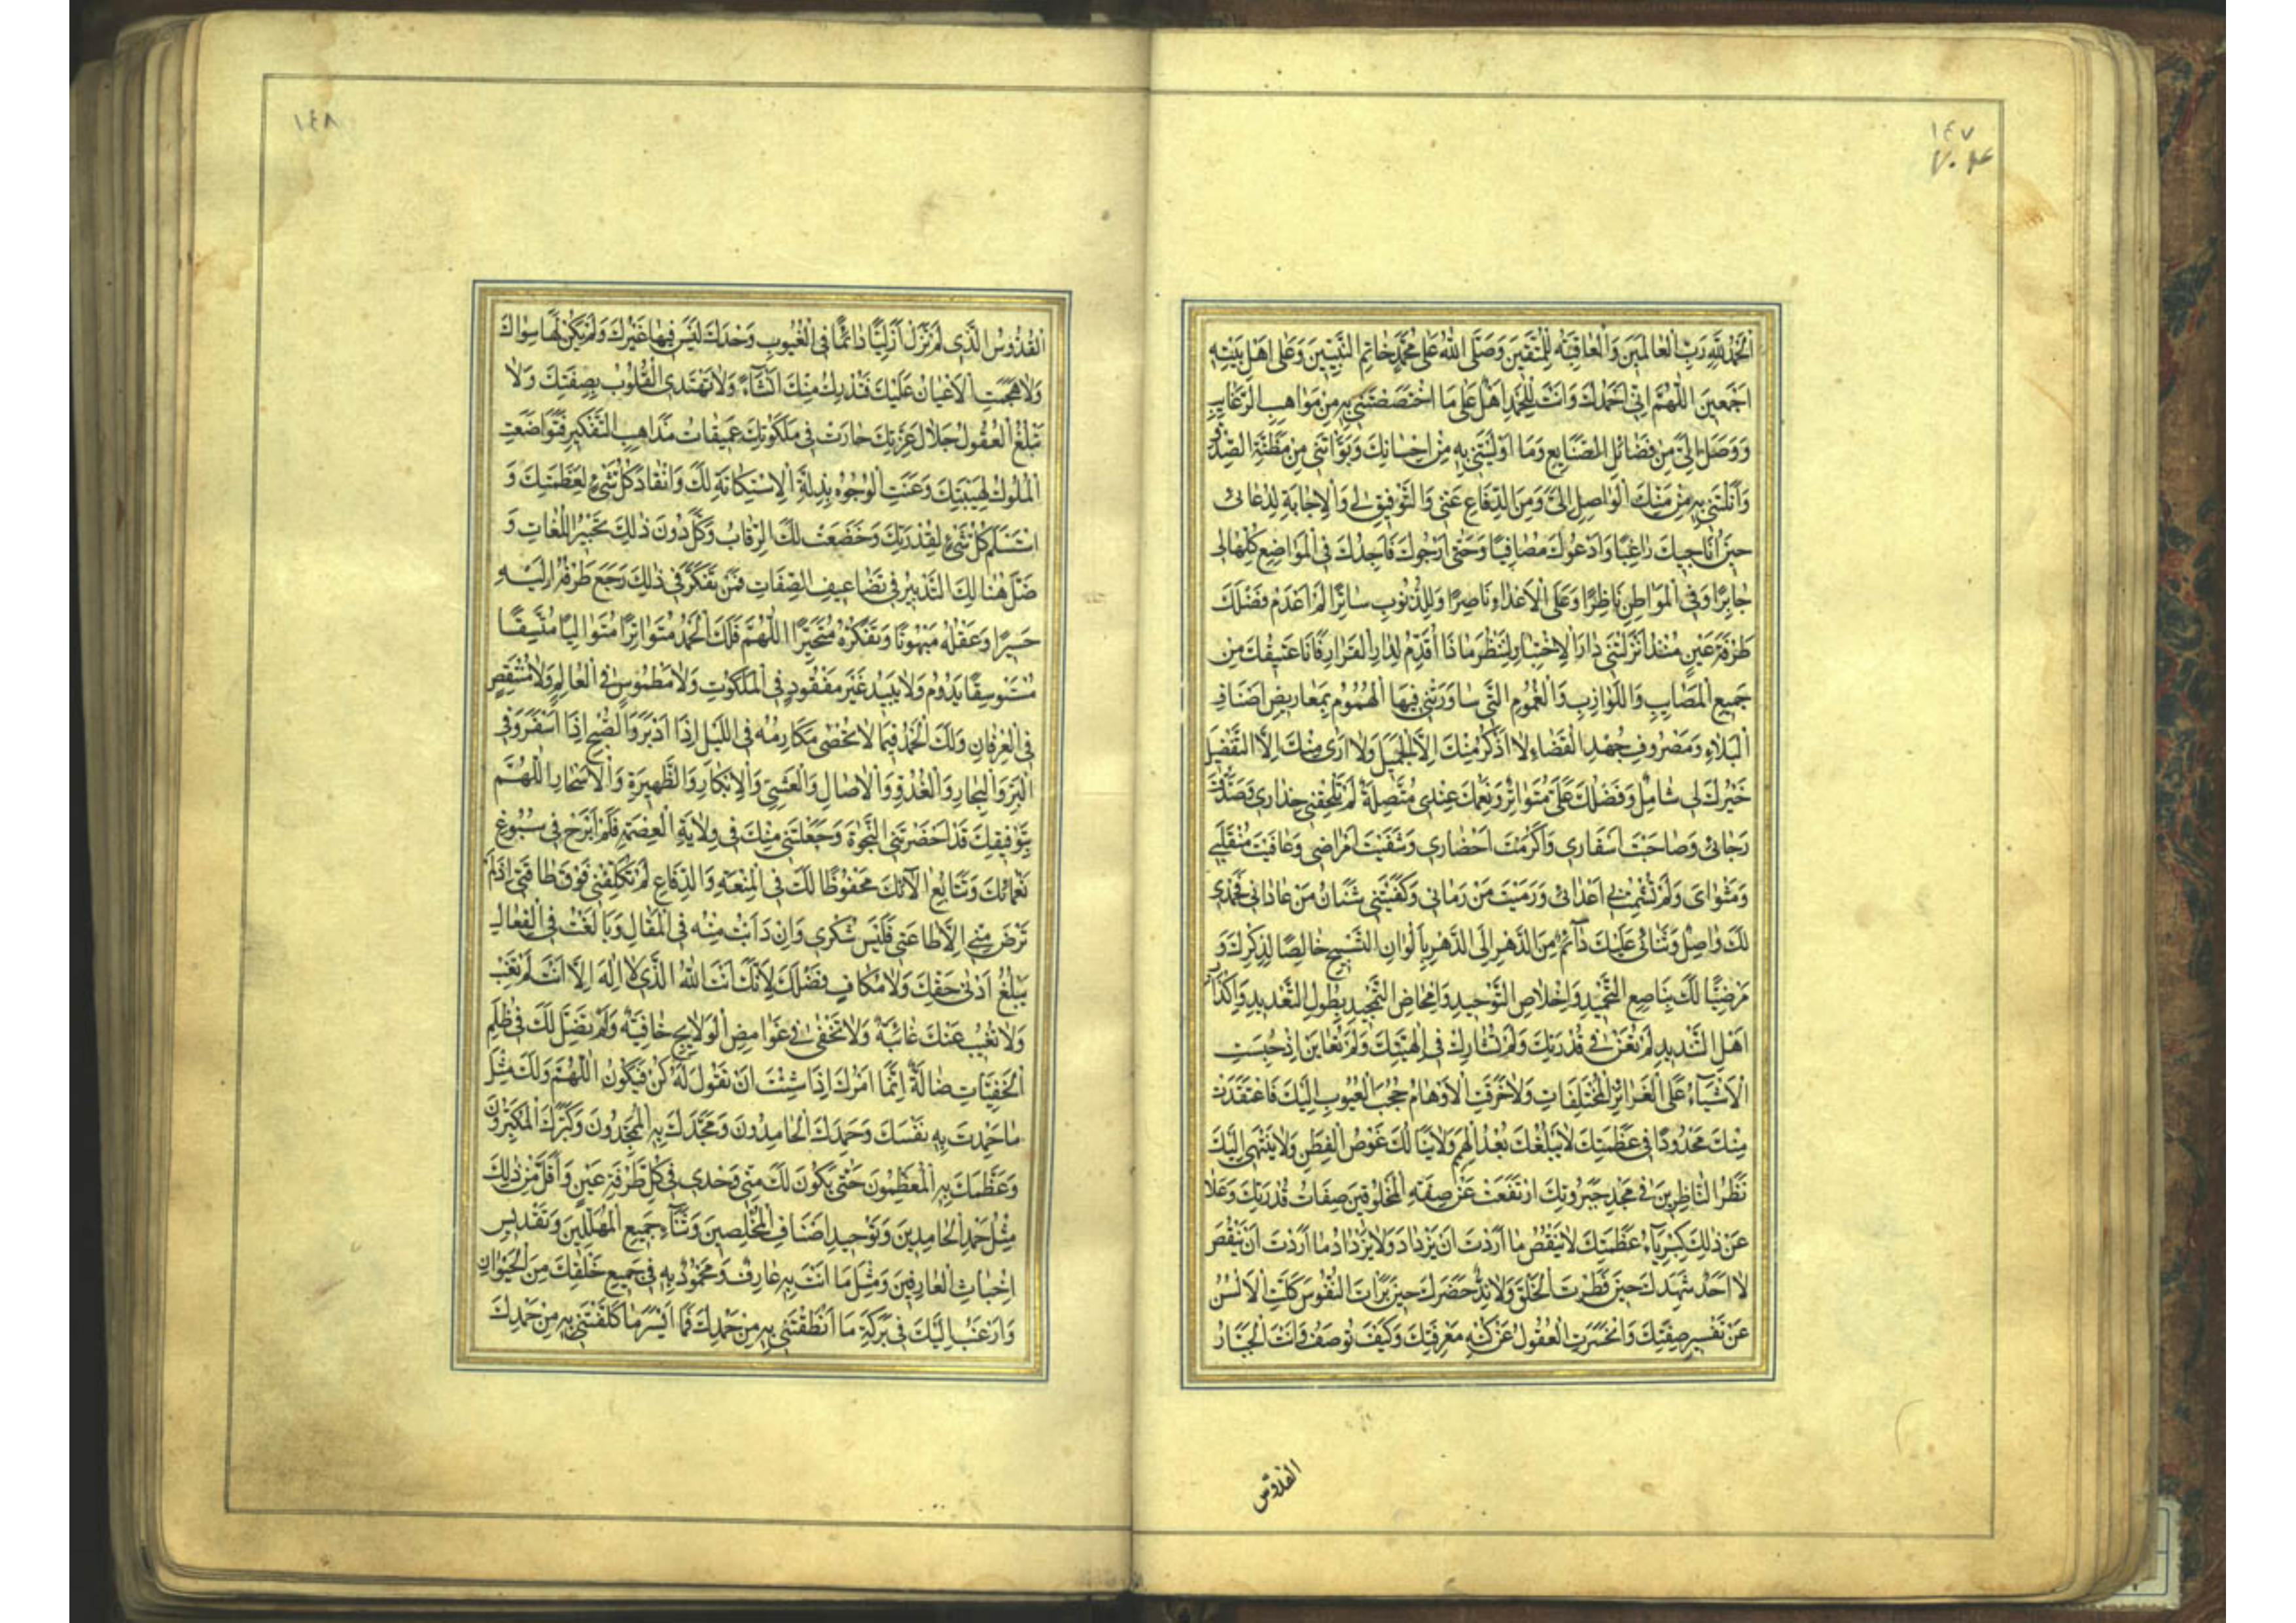 ١٤٧
٧٠٤
اَلْحَمْدُ لِلّٰهِ رَبِّ الْعٰالَمينَ وَالْعٰاقِبَةُ لِلْمُتَّقينَ وَصَلَّى اللّٰهُ عَلىٰ مُحَمَّدٍ خٰاتِمِ النَّبِيّينَ وَعَلىٰ اَهْلِ بَيْتِهِ
اَجْمَعينَ اَللّٰهُمَّ اِنّى اَحْمَدُكَ وَاَنْتَ لِلْحَمْدِ اَهْلٌ عَلىٰ مَا اخْتَصَصْتَنى بِهِ مِنْ مَوٰاهِبِ الرَّغٰايِبِ
وَوَصَلَ اِلَىَّ مِنْ فَضٰائِلِ الصَّنٰايِعِ وَمٰا اَوْلَيْتَنى بِهِ مِنْ اِحْسٰانِكَ وَبَوَّاْتَنى مِنْ مَظَنَّةِ الصِّدْقِ
وَاَنَلْتَنى بِهِ مِنْ مَنِّكَ الْوٰاصِلِ اِلَىَّ وَمِنَ الدِّفٰاعِ عَنّى وَالتَّوْفيقِ لى وَالْاِجٰابَةِ لِدُعٰائى
حينَ اُنٰاجيكَ رٰاغِبًا وَاَدْعُوكَ مُصٰافِيًا وَحَتّىٰ اَرْجُوكَ فَاَجِدُكَ فِى الْمَوٰاضِعِ كُلِّهٰا لى
جٰابِرًا وَفِى الْمَوٰاطِنِ نٰاظِرًا وَعَلَى الْاَعْدٰاءِ نٰاصِرًا وَلِلذُّنُوبِ سٰاتِرًا لَمْ اَعْدَمْ فَضْلَكَ
طَرْفَةَ عَيْنٍ مُنْذُ اَنْزَلْتَنى دٰارَ الْاِخْتِبٰارِ لِتَنْظُرَ مٰاذٰا اُقَدِّمُ لِدٰارِ الْقَرٰارِ فَاَنَا عَتيقُكَ مِنْ
جَميعِ الْمَصٰايِبِ وَاللَّوٰازِبِ وَالْغُمُومِ الَّتى سٰاوَرَتْنى فيهَا الْهُمُومُ بِمَعٰاريضِ اَصْنٰافِ
الْبَلٰاءِ وَمَصْرُوفِ جُهْدِ الْقَضٰاءِ لٰا اَذْكُرُ مِنْكَ اِلَّا الْجَميلَ وَلٰا اَرىٰ مِنْكَ اِلَّا التَّفْضيلَ
خَيْرُكَ لى شٰامِلٌ وَفَضْلُكَ عَلَىَّ مُتَوٰاتِرٌ وَنِعَمُكَ عِنْدى مُتَّصِلَةٌ لَمْ تُحَقِّقْ حِذٰارى وَصَدَّقْتَ
رَجٰائى وَصٰاحَبْتَ اَسْفٰارى وَاَكْرَمْتَ اَحْضٰارى وَشَفَيْتَ اَمْرٰاضى وَعٰافَيْتَ مُنْقَلَبى
وَمَثْوٰاىَ وَلَمْ تُشْمِتْ بى اَعْدٰائى وَرَمَيْتَ مَنْ رَمٰانى وَكَفَيْتَنى شَنَاٰنَ مَنْ عٰادٰانى فَحَمْدى
لَكَ وٰاصِلٌ وَثَنٰائى عَلَيْكَ دٰاۤئِمٌ مِنَ الدَّهْرِ اِلَى الدَّهْرِ بِاَلْوٰانِ التَّسْبيحِ خٰالِصًا لِذِكْرِكَ وَ
مَرْضِيًّا لَكَ بِنٰاصِعِ التَّحْميدِ وَاِخْلٰاصِ التَّوْحيدِ وَاِمْحٰاضِ التَّمْجيدِ بِطُولِ التَّعْديدِ وَاِكْذٰابِ
اَهْلِ التَّنْديدِ لَمْ تُعَنْ فى قُدْرَتِكَ وَلَمْ تُشٰارَكْ فى اِلٰهِيَّتِكَ وَلَمْ تُعٰايَنْ اِذْ حَبَسْتَ
الْاَشْيٰاءَ عَلَى الْغَرٰائِزِ الْمُخْتَلِفٰاتِ وَلٰا خَرَقَتِ الْاَوْهٰامُ حُجُبَ الْغُيُوبِ اِلَيْكَ فَاعْتَقَدَتْ
مِنْكَ مَحْدُودًا فى عَظَمَتِكَ لٰا يَبْلُغُكَ بُعْدُ الْهِمَمِ وَلٰا يَنٰالُكَ غَوْصُ الْفِطَنِ وَلٰا يَنْتَهى اِلَيْكَ
نَظَرُ النّٰاظِرينَ فى مَجْدِ جَبَرُوتِكَ ارْتَفَعَتْ عَنْ صِفَةِ الْمَخْلُوقينَ صِفٰاتُ قُدْرَتِكَ وَعَلٰا
عَنْ ذٰلِكَ كِبْرِيٰاۤءُ عَظَمَتِكَ لٰا يَنْقُصُ مٰا اَرَدْتَ اَنْ يَزْدٰادَ وَلٰا يَزْدٰادُ مٰا اَرَدْتَ اَنْ يَنْقُصَ
لٰا اَحَدٌ شَهِدَكَ حينَ فَطَرْتَ الْخَلْقَ وَلٰا نِدٌّ حَضَرَكَ حينَ بَرَاْتَ النُّفُوسَ كَلَّتِ الْاَلْسُنُ
عَنْ تَفْسيرِ صِفَتِكَ وَانْحَسَرَتِ الْعُقُولُ عَنْ كُنْهِ مَعْرِفَتِكَ وَكَيْفَ تُوصَفُ وَاَنْتَ الْجَبّٰارُ
القدّوس
١٤٨
الْقُدُّوسُ الَّذى لَمْ تَزَلْ اَزَلِيًّا دٰائِمًا فِى الْغُيُوبِ وَحْدَكَ لَيْسَ فيهٰا غَيْرُكَ وَلَمْ يَكُنْ لَهٰا سِوٰاكَ
وَلٰا هَجَمَتِ الْاَعْيٰانُ عَلَيْكَ فَتُدْرِكَ مِنْكَ اِنْشٰاۤءً وَلٰا تَهْتَدِى الْقُلُوبُ بِصِفَتِكَ وَلٰا
تَبْلُغُ الْعُقُولُ جَلٰالَ عِزَّتِكَ حٰارَتْ فى مَلَكُوتِكَ عَميقٰاتُ مَذٰاهِبِ التَّفْكيرِ فَتَوٰاضَعَتِ
الْمُلُوكُ لِهَيْبَتِكَ وَعَنَتِ الْوُجُوهُ بِذِلَّةِ الْاِسْتِكٰانَةِ لَكَ وَانْقٰادَ كُلُّ شَىْءٍ لِعَظَمَتِكَ وَ
اسْتَسْلَمَ كُلُّ شَىْءٍ لِقُدْرَتِكَ وَخَضَعَتْ لَكَ الرِّقٰابُ وَكَلَّ دُونَ ذٰلِكَ تَحْبيرُ اللُّغٰاتِ وَ
ضَلَّ هُنٰالِكَ التَّدْبيرُ فى تَضٰاعيفِ الصِّفٰاتِ فَمَنْ تَفَكَّرَ فى ذٰلِكَ رَجَعَ طَرْفُهُ اِلَيْهِ
حَسيرًا وَعَقْلُهُ مَبْهُوتًا وَتَفَكُّرُهُ مُتَحَيِّرًا اَللّٰهُمَّ فَلَكَ الْحَمْدُ مُتَوٰاتِرًا مُتَوٰالِيًا مُتَّسِقًا
مُسْتَوْسِقًا يَدُومُ وَلٰا يَبيدُ غَيْرَ مَفْقُودٍ فِى الْمَلَكُوتِ وَلٰا مَطْمُوسٍ فِى الْعٰالَمِ وَلٰا مُنْتَقِصٍ
فِى الْعِرْفٰانِ وَلَكَ الْحَمْدُ فيمٰا لٰا تُحْصىٰ مَكٰارِمُهُ فِى اللَّيْلِ اِذٰا اَدْبَرَ وَالصُّبْحِ اِذٰا اَسْفَرَ وَفِى
الْبَرِّ وَالْبِحٰارِ وَالْغُدُوِّ وَالْاٰصٰالِ وَالْعَشِىِّ وَالْاِبْكٰارِ وَالظَّهيرَةِ وَالْاَسْحٰارِ اَللّٰهُمَّ
بِتَوْفيقِكَ قَدْ اَحْضَرْتَنِى النَّجٰوةَ وَجَعَلْتَنى مِنْكَ فى وِلٰايَةِ الْعِصْمَةِ فَلَمْ اَبْرَحْ فى سُبُوغِ
نَعْمٰائِكَ وَتَتٰابُعِ اٰلٰائِكَ مَحْفُوظًا لَكَ فِى الْمَنْعَةِ وَالدِّفٰاعِ لَمْ تُكَلِّفْنى فَوْقَ طٰاقَتى اِذْ لَمْ
تَرْضَ مِنّى اِلَّا طٰاعَتى فَلَيْسَ شُكْرى وَاِنْ دَاَبْتُ مِنْهُ فِى الْمَقٰالِ وَبٰالَغْتُ فِى الْفِعٰالِ
يَبْلُغُ اَدْنىٰ حَقِّكَ وَلٰا مُكٰافٍ فَضْلَكَ لِاَنَّكَ اَنْتَ اللّٰهُ الَّذى لٰا اِلٰهَ اِلّٰا اَنْتَ لَمْ تَغِبْ
وَلٰا تَغيبُ عَنْكَ غٰائِبَةٌ وَلٰا تَخْفىٰ فى غَوٰامِضِ الْوَلٰايِجِ خٰافِيَةٌ وَلَمْ تَضِلَّ لَكَ فى ظُلَمِ
الْخَفِيّٰاتِ ضٰالَّةٌ اِنَّمٰا اَمْرُكَ اِذٰا شِئْتَ اَنْ تَقُولَ لَهُ كُنْ فَيَكُونُ اَللّٰهُمَّ وَلَكَ مِثْلَ
مٰا حَمِدْتَ بِهِ نَفْسَكَ وَحَمِدَكَ الْحٰامِدُونَ وَمَجَّدَكَ بِهِ الْمُمَجِّدُونَ وَكَبَّرَكَ الْمُكَبِّرُونَ
وَعَظَّمَكَ بِهِ الْمُعَظِّمُونَ حَتّىٰ يَكُونَ لَكَ مِنّى وَحْدى فى كُلِّ طَرْفَةِ عَيْنٍ وَاَقَلَّ مِنْ ذٰلِكَ
مِثْلُ حَمْدِ الْحٰامِدينَ وَتَوْحيدِ اَصْنٰافِ الْمُخْلِصينَ وَثَنٰاۤءِ جَميعِ الْمُهَلِّلينَ وَتَقْديسِ
اِخْبٰاتِ الْعٰارِفينَ وَمِثْلَ مٰا اَنْتَ بِهِ عٰارِفٌ وَمَحْمُودٌ بِهِ فى جَميعِ خَلْقِكَ مِنَ الْحَيَوٰانِ
وَاَرْغَبُ اِلَيْكَ فى بَرَكَةِ مٰا اَنْطَقْتَنى بِهِ مِنْ حَمْدِكَ فَمٰا اَيْسَرَ مٰا كَلَّفْتَنى بِهِ مِنْ حَمْدِكَ